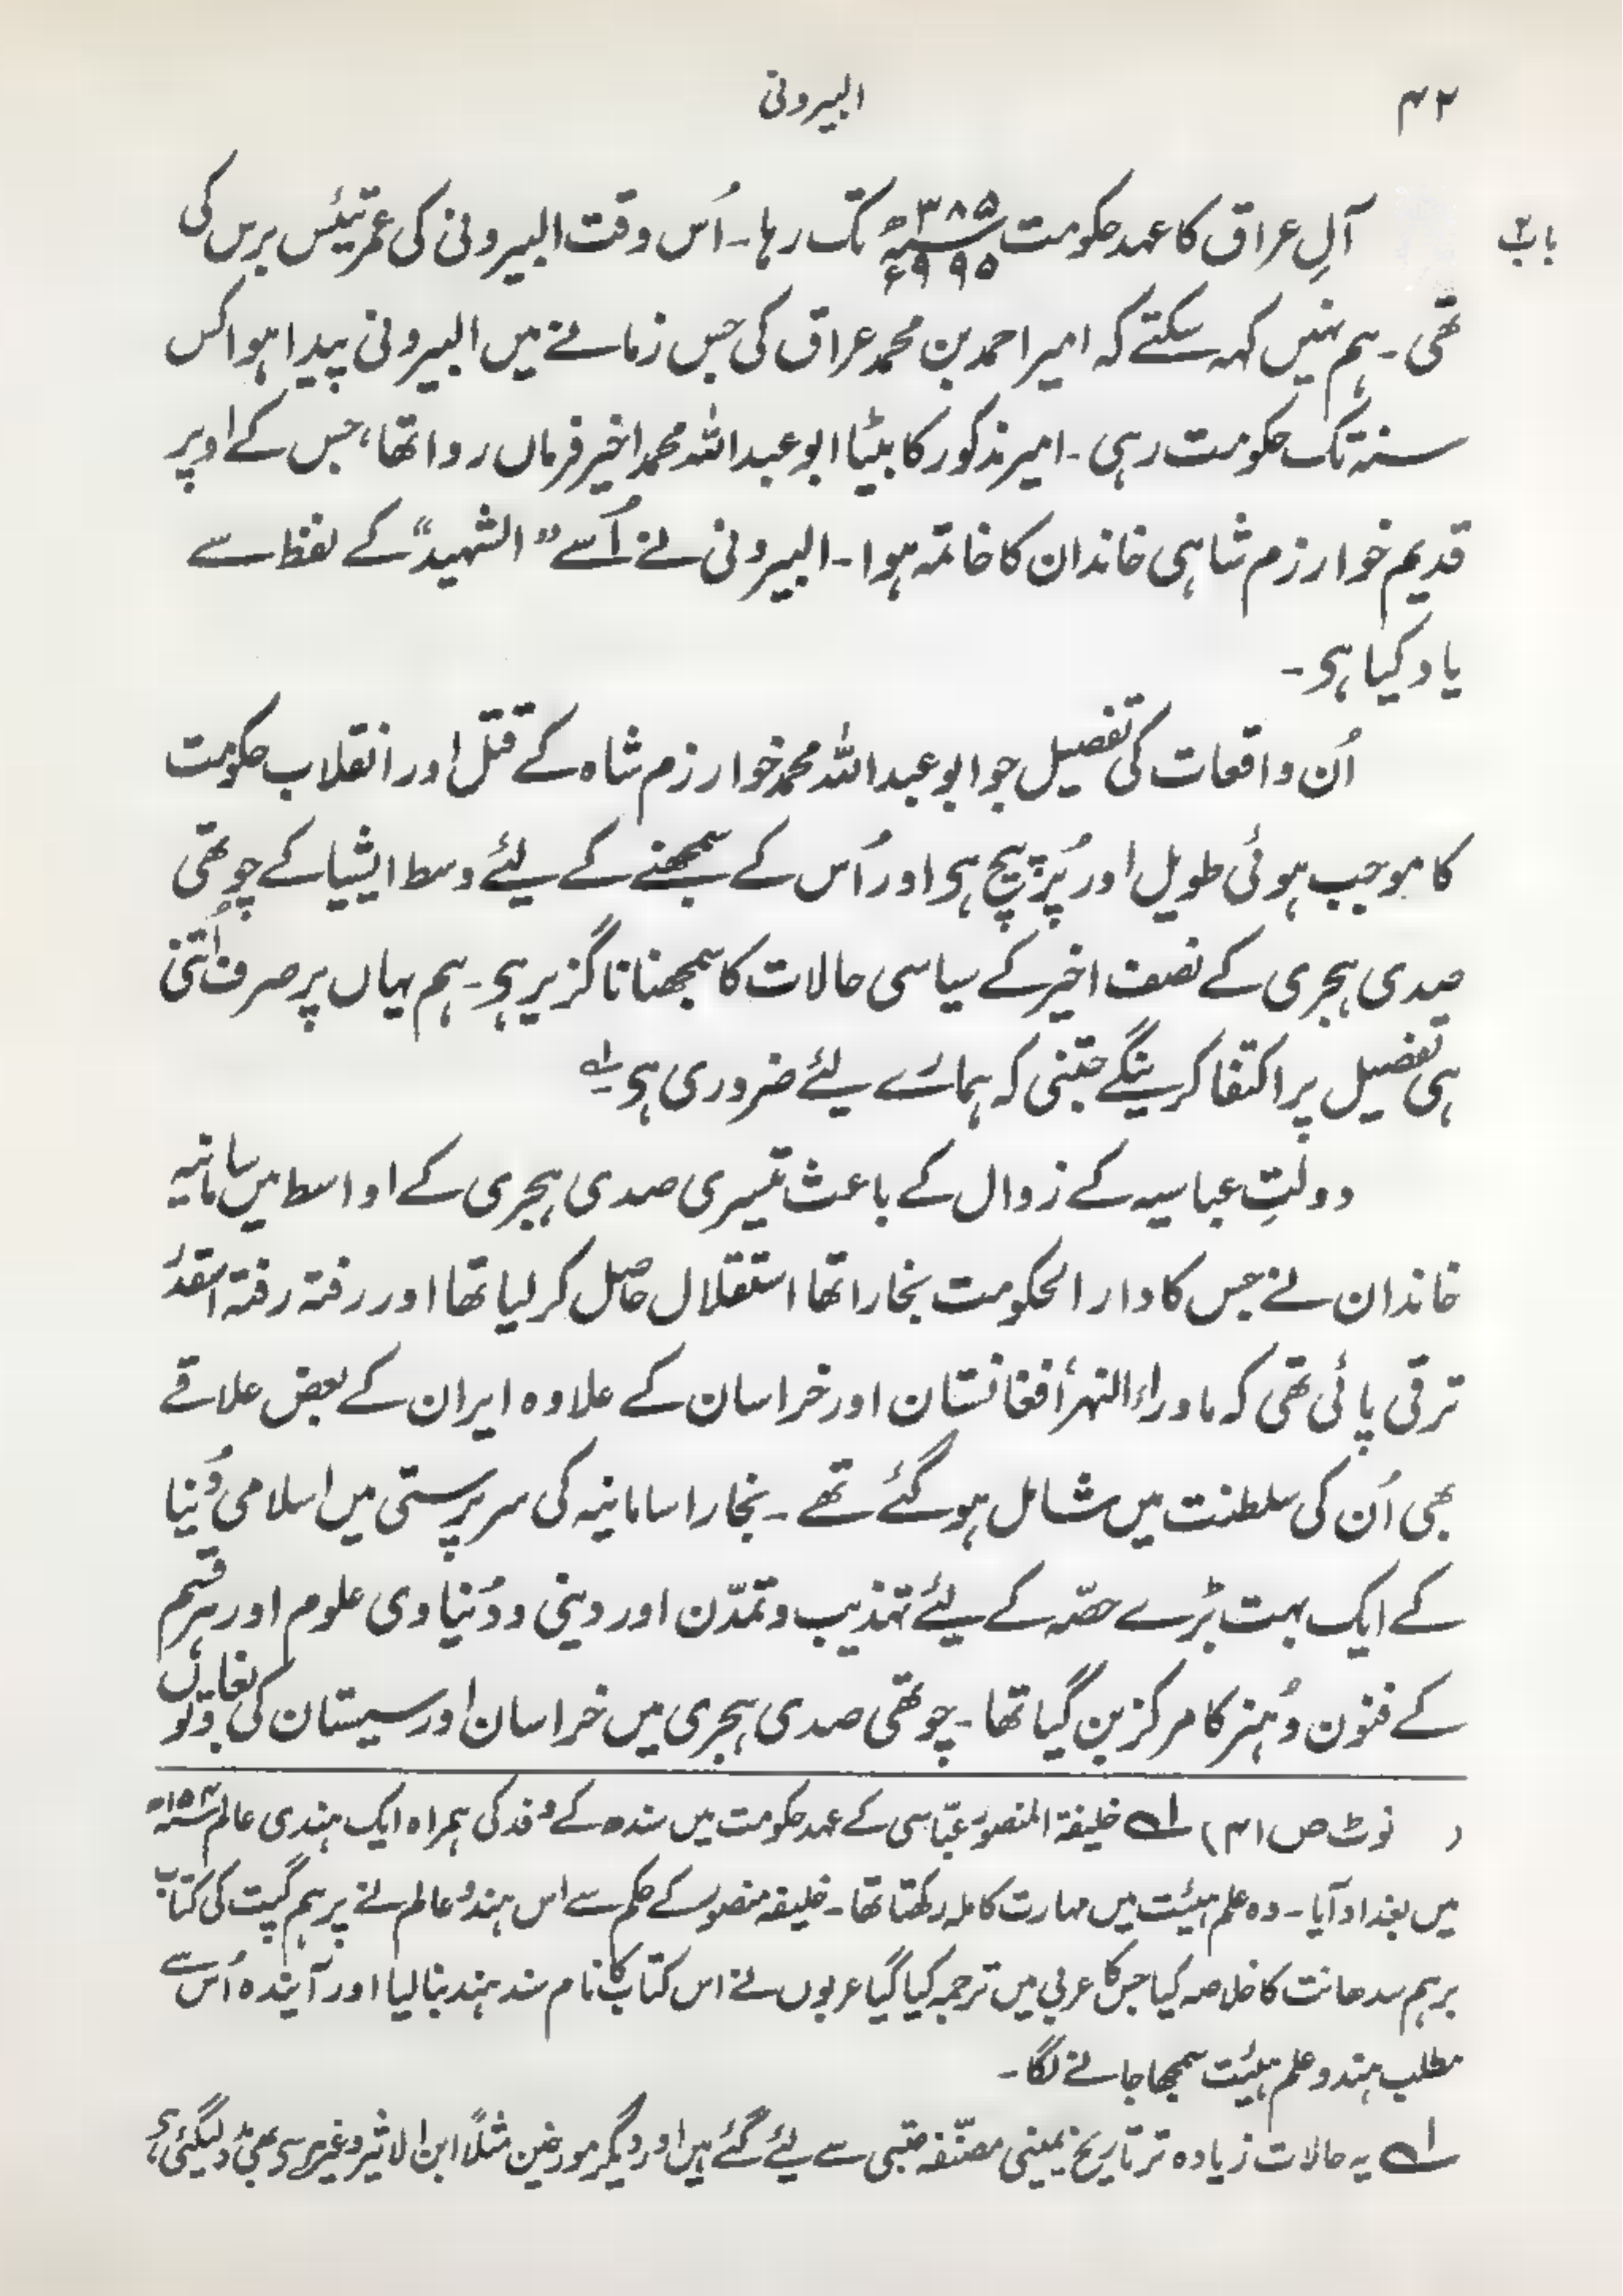 ۴۲
البیرونی
باب۲
آلِ عراق کا عہد حکومت ۳۸۵ھ سنہ ۹۹۵ء تک رہا۔ اُس وقت البیرونی کی عمر تیئس برس کی
تھی۔ ہم نہیں کہہ سکتے کہ امیر احمد بن محمد عراق کی جس زمانے میں البیرونی پیدا ہوا کس
سنہ تک حکومت رہی۔ امیر مذکور کا بیٹا ابو عبداللہ محمد اخیر فرماں روا تھا، جس کے اوپر
قدیم خوارزم شاہی خاندان کا خاتمہ ہوا۔ البیرونی نے اُسے "الشہید" کے لفظ سے
یاد کیا ہی۔
اُن واقعات کی تفصیل جو ابو عبداللہ محمد خوارزم شاہ کے قتل اور انقلاب حکومت
کا موجب ہوئی طویل اور پُرپیچ ہی اور اُس کے سمجھنے کے لیئے وسط ایشیا کے چوتھی
صدی ہجری کے نصف اخیر کے سیاسی حالات کا سمجھنا ناگزیر ہی۔ ہم یہاں پر صرف اُتنی
ہی تفصیل پر اکتفا کرینگے جتنی کہ ہمارے لیئے ضروری ہی لہ
دولتِ عباسیہ کے زوال کے باعث تیسری صدی ہجری کے اواسط میں سامانیہ
خاندان نے جس کا دار الحکومت بخارا تھا استقلال حاصل کر لیا تھا اور رفتہ رفتہ اسقدر
ترقی پائی تھی کہ ماوراء النہر، افغانستان اور خراسان کے علاوہ ایران کے بعض علاقے
بھی اُن کی سلطنت میں شامل ہو گئے تھے۔ بخارا سامانیہ کی سرپرستی میں اسلامی دُنیا
کے ایک بہت بڑے حصّہ کے لیئے تہذیب و تمدّن اور دینی و دُنیاوی علوم اور ہر قسم
کے فنون و ہُنر کا مرکز بن گیا تھا۔ چوتھی صدی ہجری میں خراسان اور سیستان کی بغاوتوں
(نوٹ ص ۴۱) لہ خلیفۃ المنصور عبّاسی کے عہد حکومت میں سندھ کے وفد کی ہمراہ ایک ہندی عالم سنہ ۱۵۴ھ
میں بغداد آیا۔ وہ علم ہیئت میں مہارت کاملہ رکھتا تھا۔ خلیفہ منصور کے حکم سے اس ہندو عالم نے برہم گپت کی کتاب
برہم سدھانت کا خلاصہ کیا جس کا عربی میں ترجمہ کیا گیا عربوں نے اس کتاب کا نام سند ہند بنا لیا اور آیندہ اُس سے
مطلب ہندو علم ہیئت سمجھا جانے لگا۔
لہ یہ حالات زیادہ تر تاریخ یمینی مصنّفہ عتبی سے لیئے گئے ہیں اور دیگر مورخین مثلاً ابن الاثیر وغیرہ سے بھی مدد لی گئی ہی